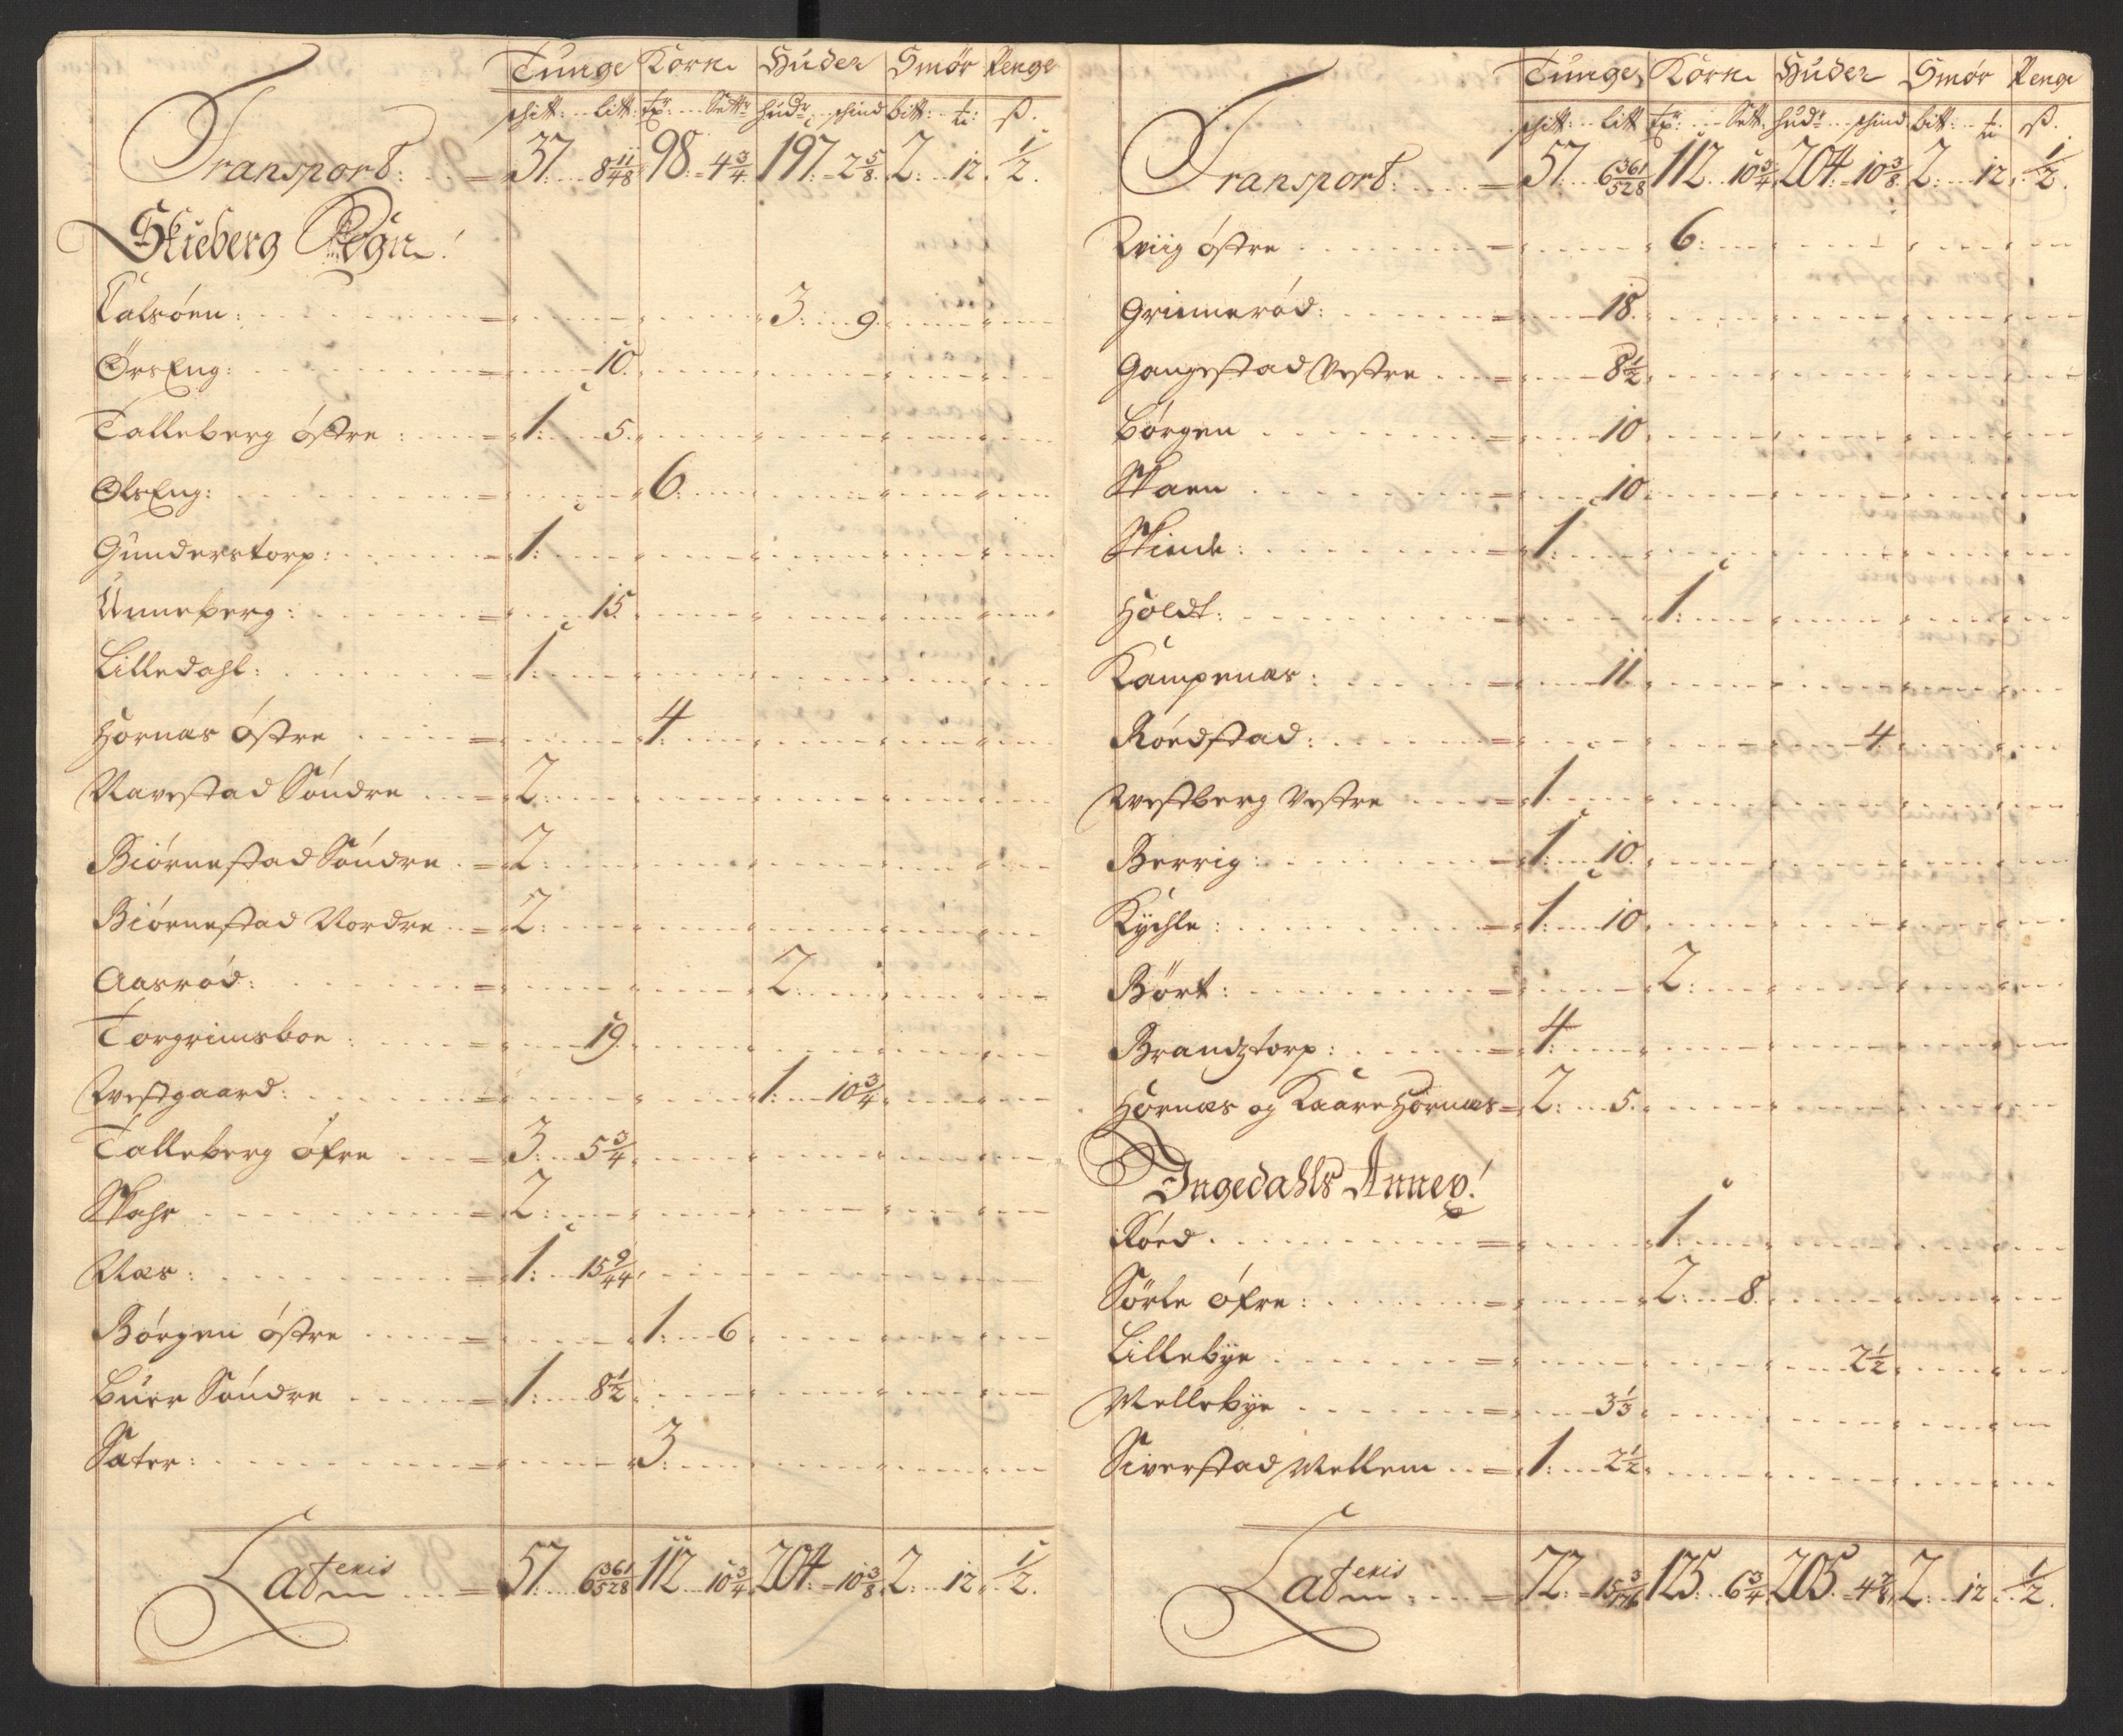 Tunge Korn Huder Smör Penge
schit: lit: Tr: Sett: hud: schind bitt: ß.
Transport: 37: 8 11/48 98: 4 3/4 197: 2 5/8 2: 12. 1/2.
Skieberg Sogn!
Talsöen: 3: 9.
ÖrsEng: 10.
Talleberg östre: 1: 5.
OlsEng: 6:
Gunderstorp: 1:
Unneberg: 15
Lilledahl: 1:
Hornæs östre 4:
Navestad Söndre 2:
Biörnestad Söndre 2:
Biörnestad Nordre 2:
Aasröd: 2:
Torgrimsboe: 19.
Westgaard: 1: 10 3/4
Talleberg öfre 3: 5 3/4
Skahr 2:
Næs: 1: 15 9/44
Börgen östre 1: 6
Buer Söndre 1: 8 1/2
Sæter: 3.
Lateris 57: 6 361/528 112 10 3/4 204: 10 3/8 2: 12. 1/2.
Tunge Korn Huder Smör Penge
schit: lit Tr: Sett: hud: schind bitt: ß.
Transport: 57: 6 361/528 112 10 3/4 204: 10 3/8 2: 12. 1/2.
Wiig östre 6:
Grimmeröd: 18.
Gangestad Vestre 8 1/2
Börgen 10
Skaen 10
Skinde: 1:
Holdt: 1:
Kampenæs: 11.
Röedstad: 4.
Westberg Vestre 1.
Berrig: 1: 10.
Kychle: 1: 10
Bört: 2:
Brandztorp: 4:
Hornæs og Kaare Hornæs 2: 5.
Ingedahls Annex!
Röed. 1:
Sörle öfre: 2: 8.
Lillebye 2 1/2
Mellebye 3 1/3
Siverstad Mellem 1: 2 1/2
Lateris 72: 125: 6 3/4 205. 2: 12. 1/2.